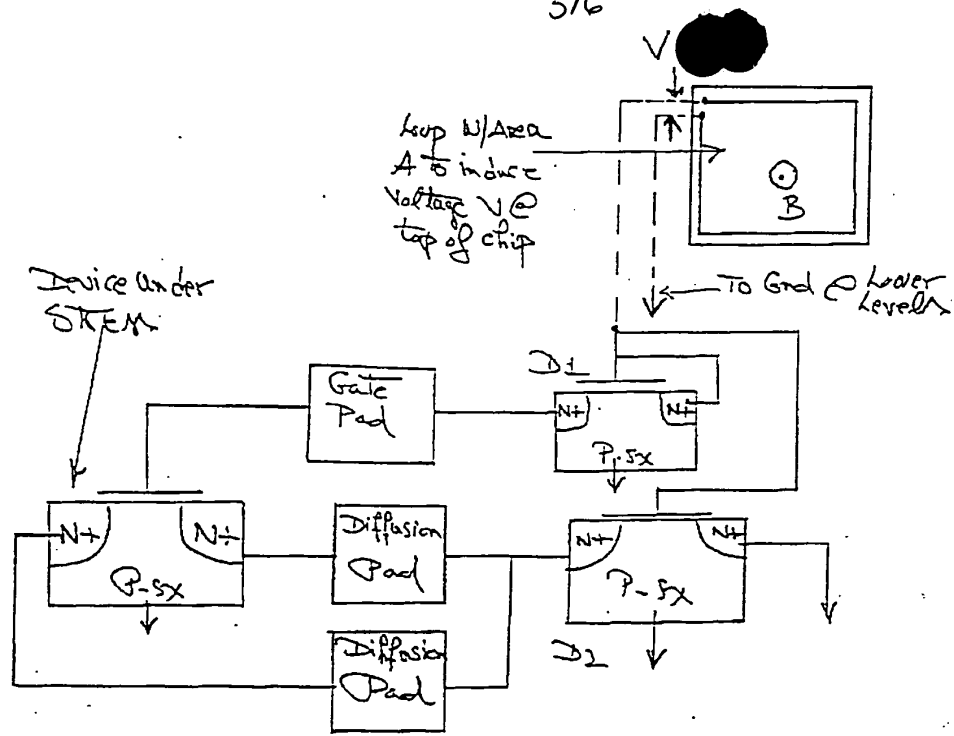 5/6
V
Loop W/Area
A to induce
Voltage V @
top of chip
B
Device under
To Gnd @ Lower
Levels
D1
Gate
Pad
N+
N+
P-sx
N+
N+
P-sx
Diffusion
Pad
N+
N+
P-sx
D2
Diffusion
Pad